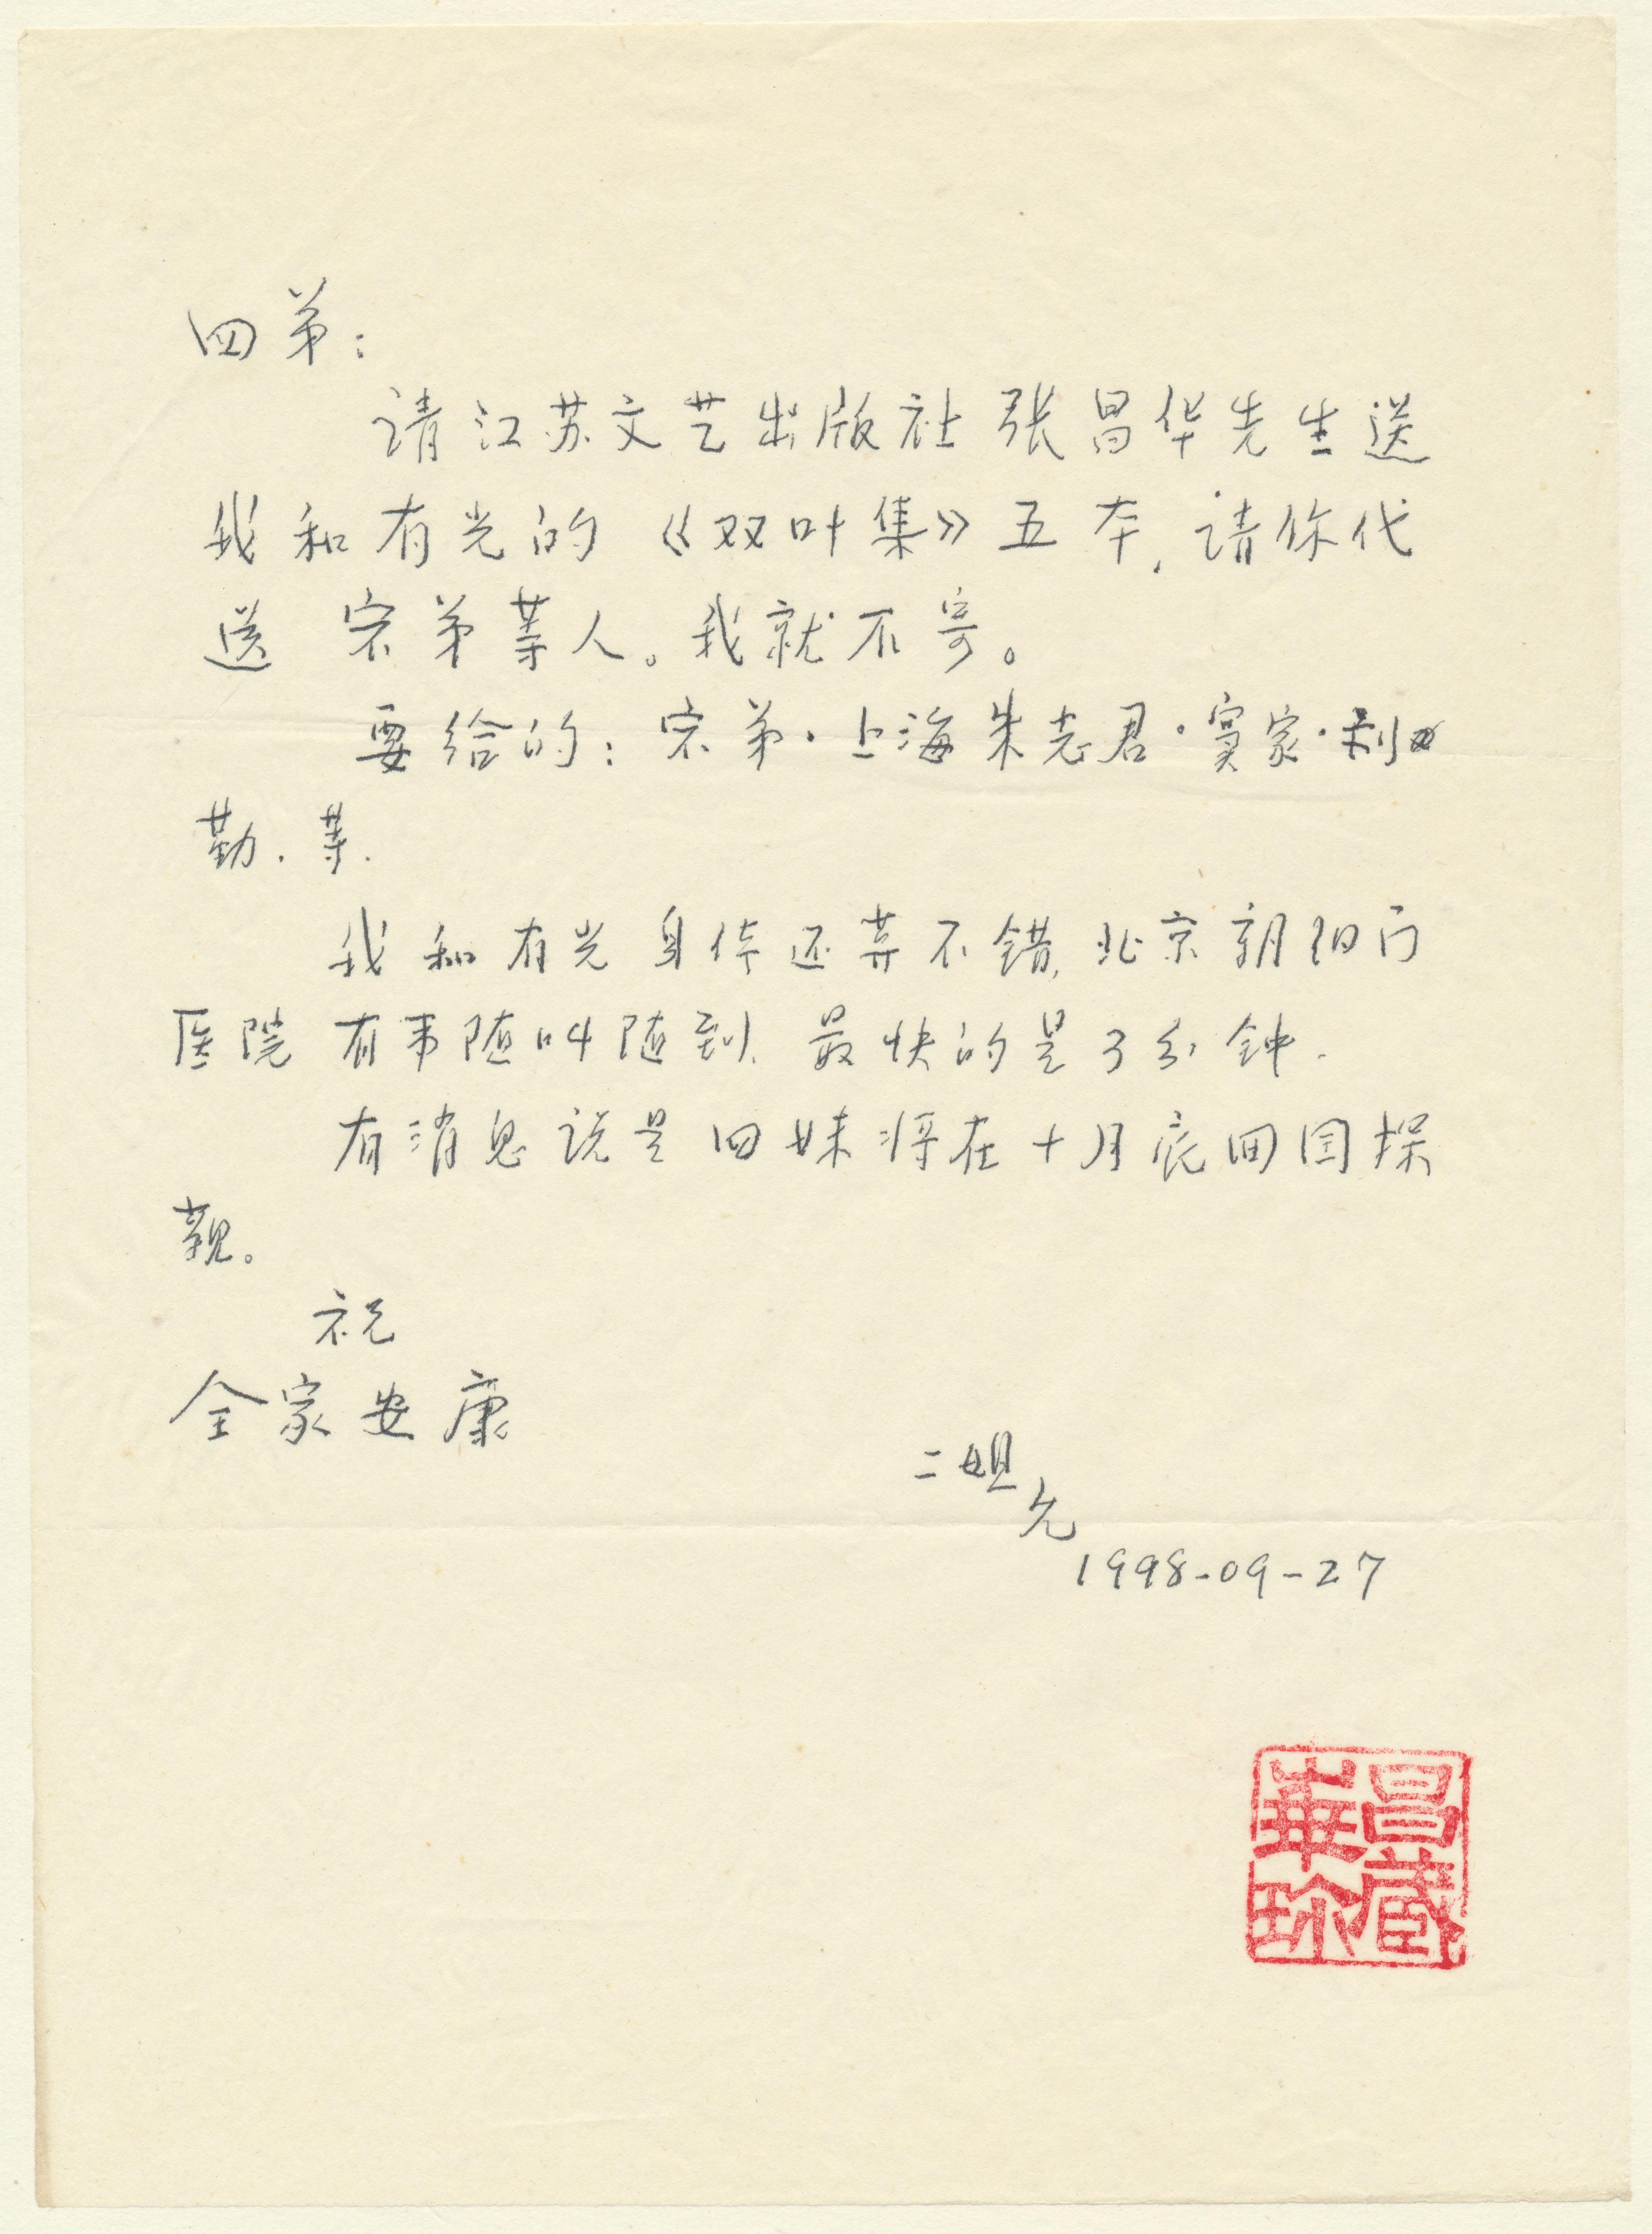 四弟:
请江苏文艺出版社张昌华先生送
我和有光的《双叶集》五本,请你代
送 宗弟等人。我就不寄。
要给的:宗弟·上海朱志君·窦家·
勤.等.
我和有光身体还算不错,北京朝阳门
医院有事随叫随到.最快的是3分钟.
有消息说是四妹将在十月底回国探
亲。
祝
全家安康
二姐
允
1998-09-27
昌藏
華珍